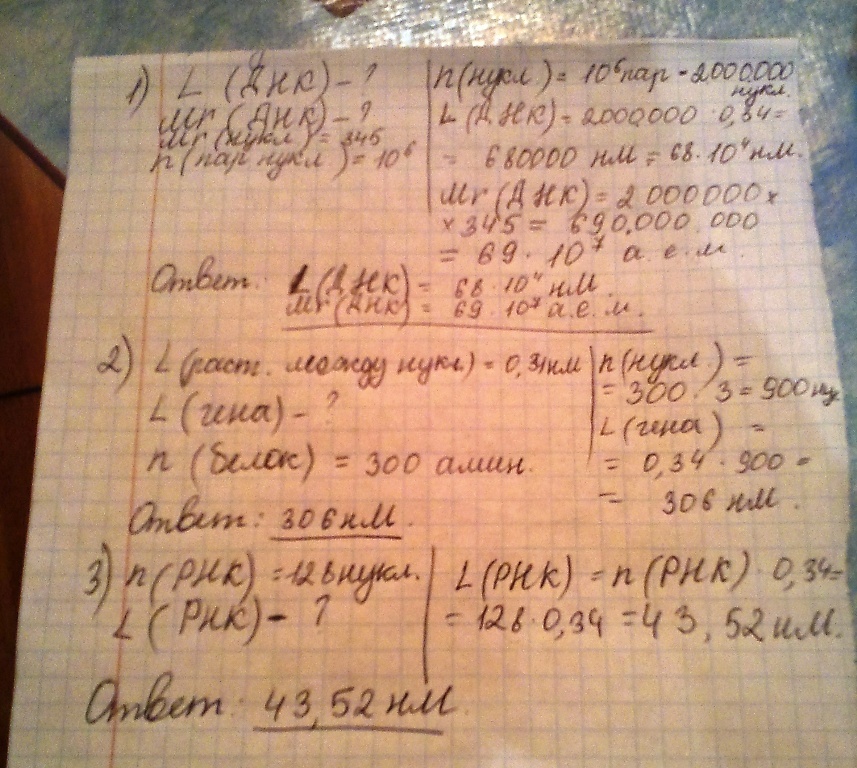 1) L (ДНК) - ?
Mr (ДНК) - ?
Mr (нукл) = 345
n (пар нукл) = 10⁶
n(нукл) = 10⁶ пар = 2000000
нукл.
L (ДНК) = 2000000 · 0,34 =
= 680000 нм = 68 · 10⁴ нм.
Mr (ДНК) = 2 000000 ×
× 345 = 690,000 000
= 69 · 10⁷ а. е. м.
Ответ: L (ДНК) = 68 · 10⁴ нм.
Mr (ДНК) = 69 · 10⁷ а.е.м.
2) L (раст. между нукл) = 0,34нм
L (гена) - ?
n (белок) = 300 амин.
n(нукл) =
= 300 · 3 = 900 ну
L (гена) =
= 0,34 · 900 =
= 306 нм.
Ответ: 306 нм.
3) n (РНК) = 128 нукл.
L (РНК) - ?
L (РНК) = n (РНК) · 0,34 =
= 128 · 0,34 = 43,52 нм.
Ответ: 43,52 нм.